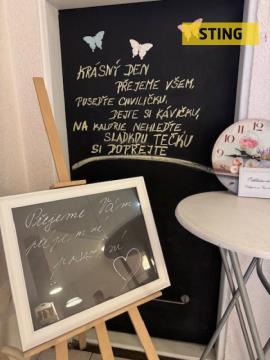 STING
KRÁSNÝ DEN
PŘEJEME VŠEM,
POSEĎTE CHVILIČKU,
DEJTE SI KÁVIČKU,
NA KALORIE NEHLEĎTE,
SLADKOU TEČKU
SI DOPŘEJTE
Přejeme Vám
příjemné
posezení